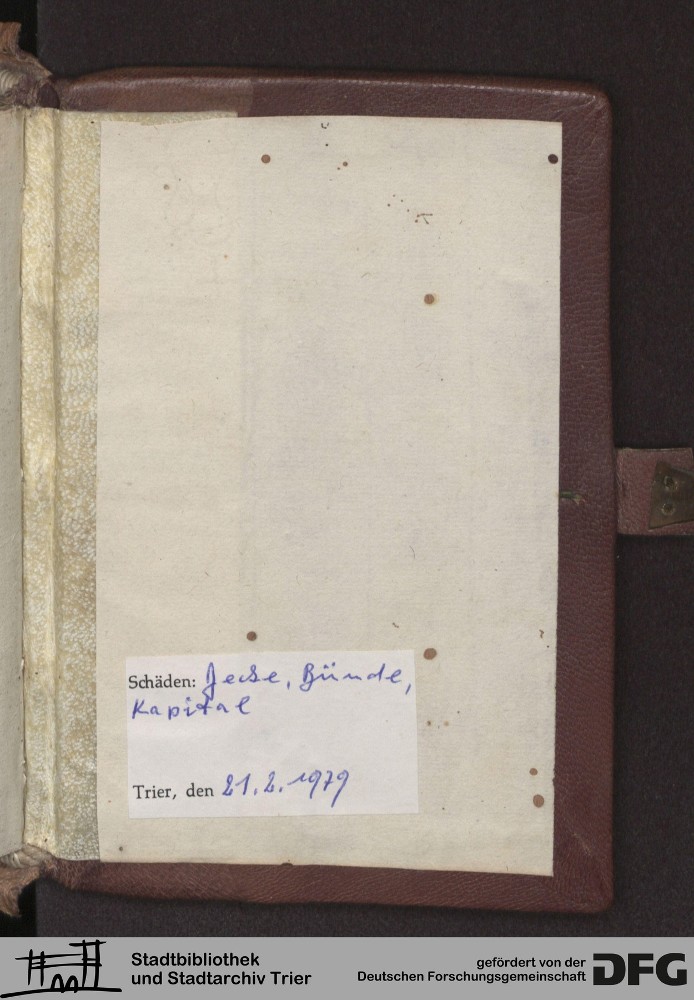 Schäden: Decke, Bünde,
Kapital
Trier, den 21.2.1979
Stadtbibliothek
und Stadtarchiv Trier
gefördert von der
Deutschen Forschungsgemeinschaft
DFG